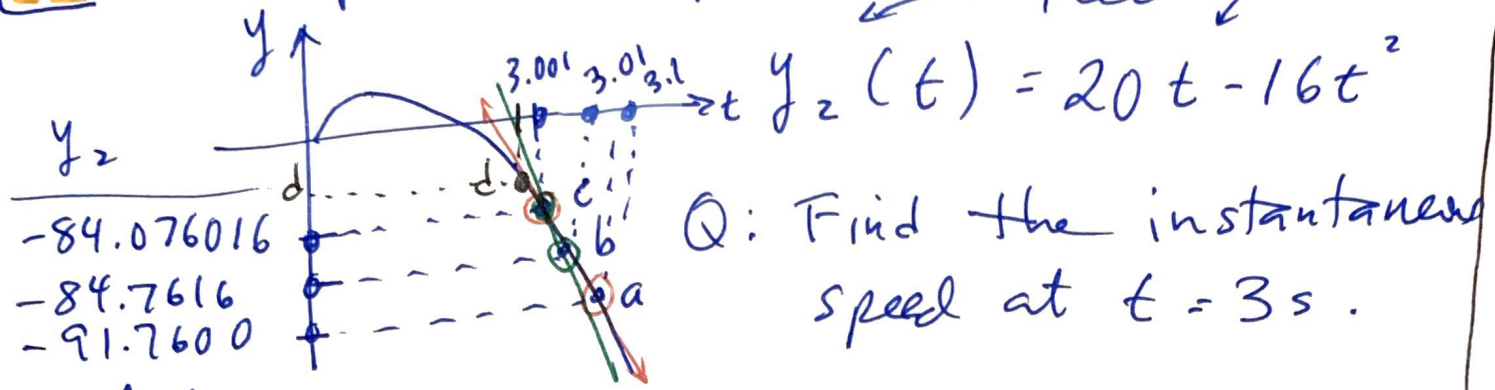 y
3.001 3.01 3.1
t
y₂(t) = 20t - 16t²
y₂
d
d
c
-84.076016
b
-84.7616
a
-91.7600
Q: Find the instantaneous
speed at t = 3s.